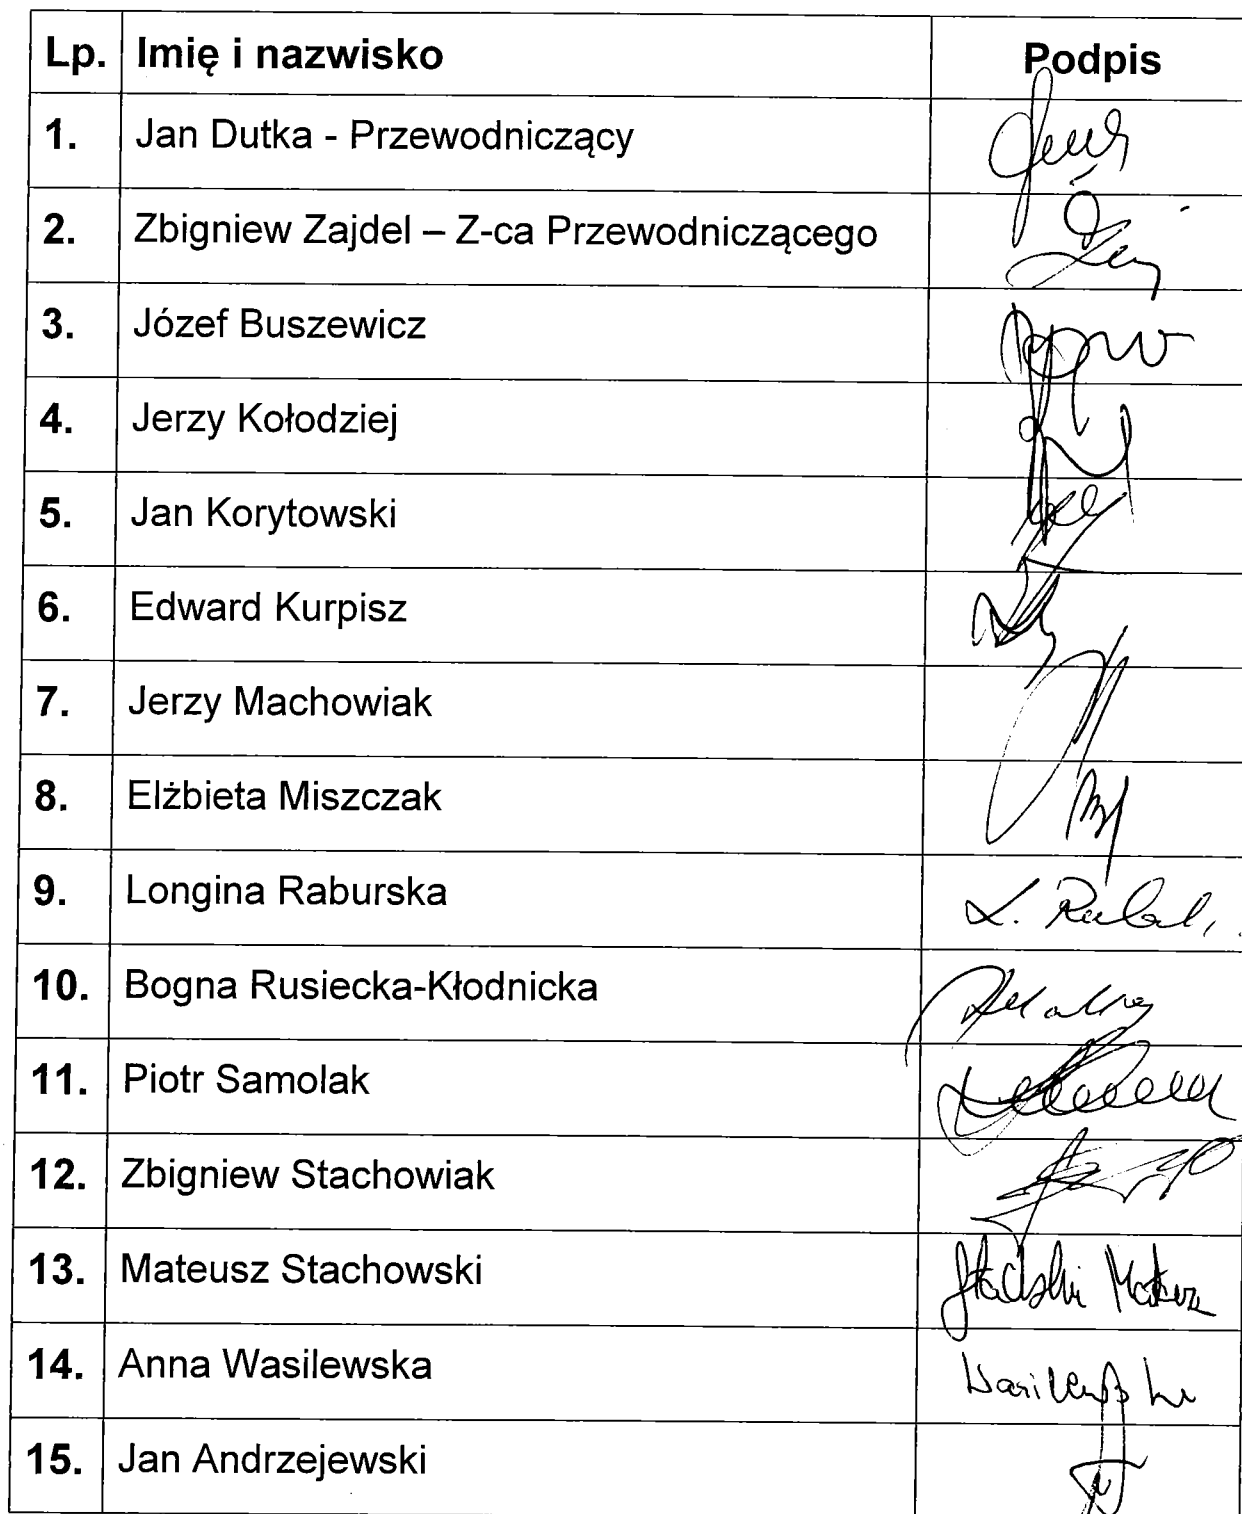 Lp. Imię i nazwisko Podpis
1. Jan Dutka - Przewodniczący
2. Zbigniew Zajdel – Z-ca Przewodniczącego
3. Józef Buszewicz
4. Jerzy Kołodziej
5. Jan Korytowski
6. Edward Kurpisz
7. Jerzy Machowiak
8. Elżbieta Miszczak
9. Longina Raburska L.
10. Bogna Rusiecka-Kłodnicka
11. Piotr Samolak
12. Zbigniew Stachowiak
13. Mateusz Stachowski
14. Anna Wasilewska
15. Jan Andrzejewski